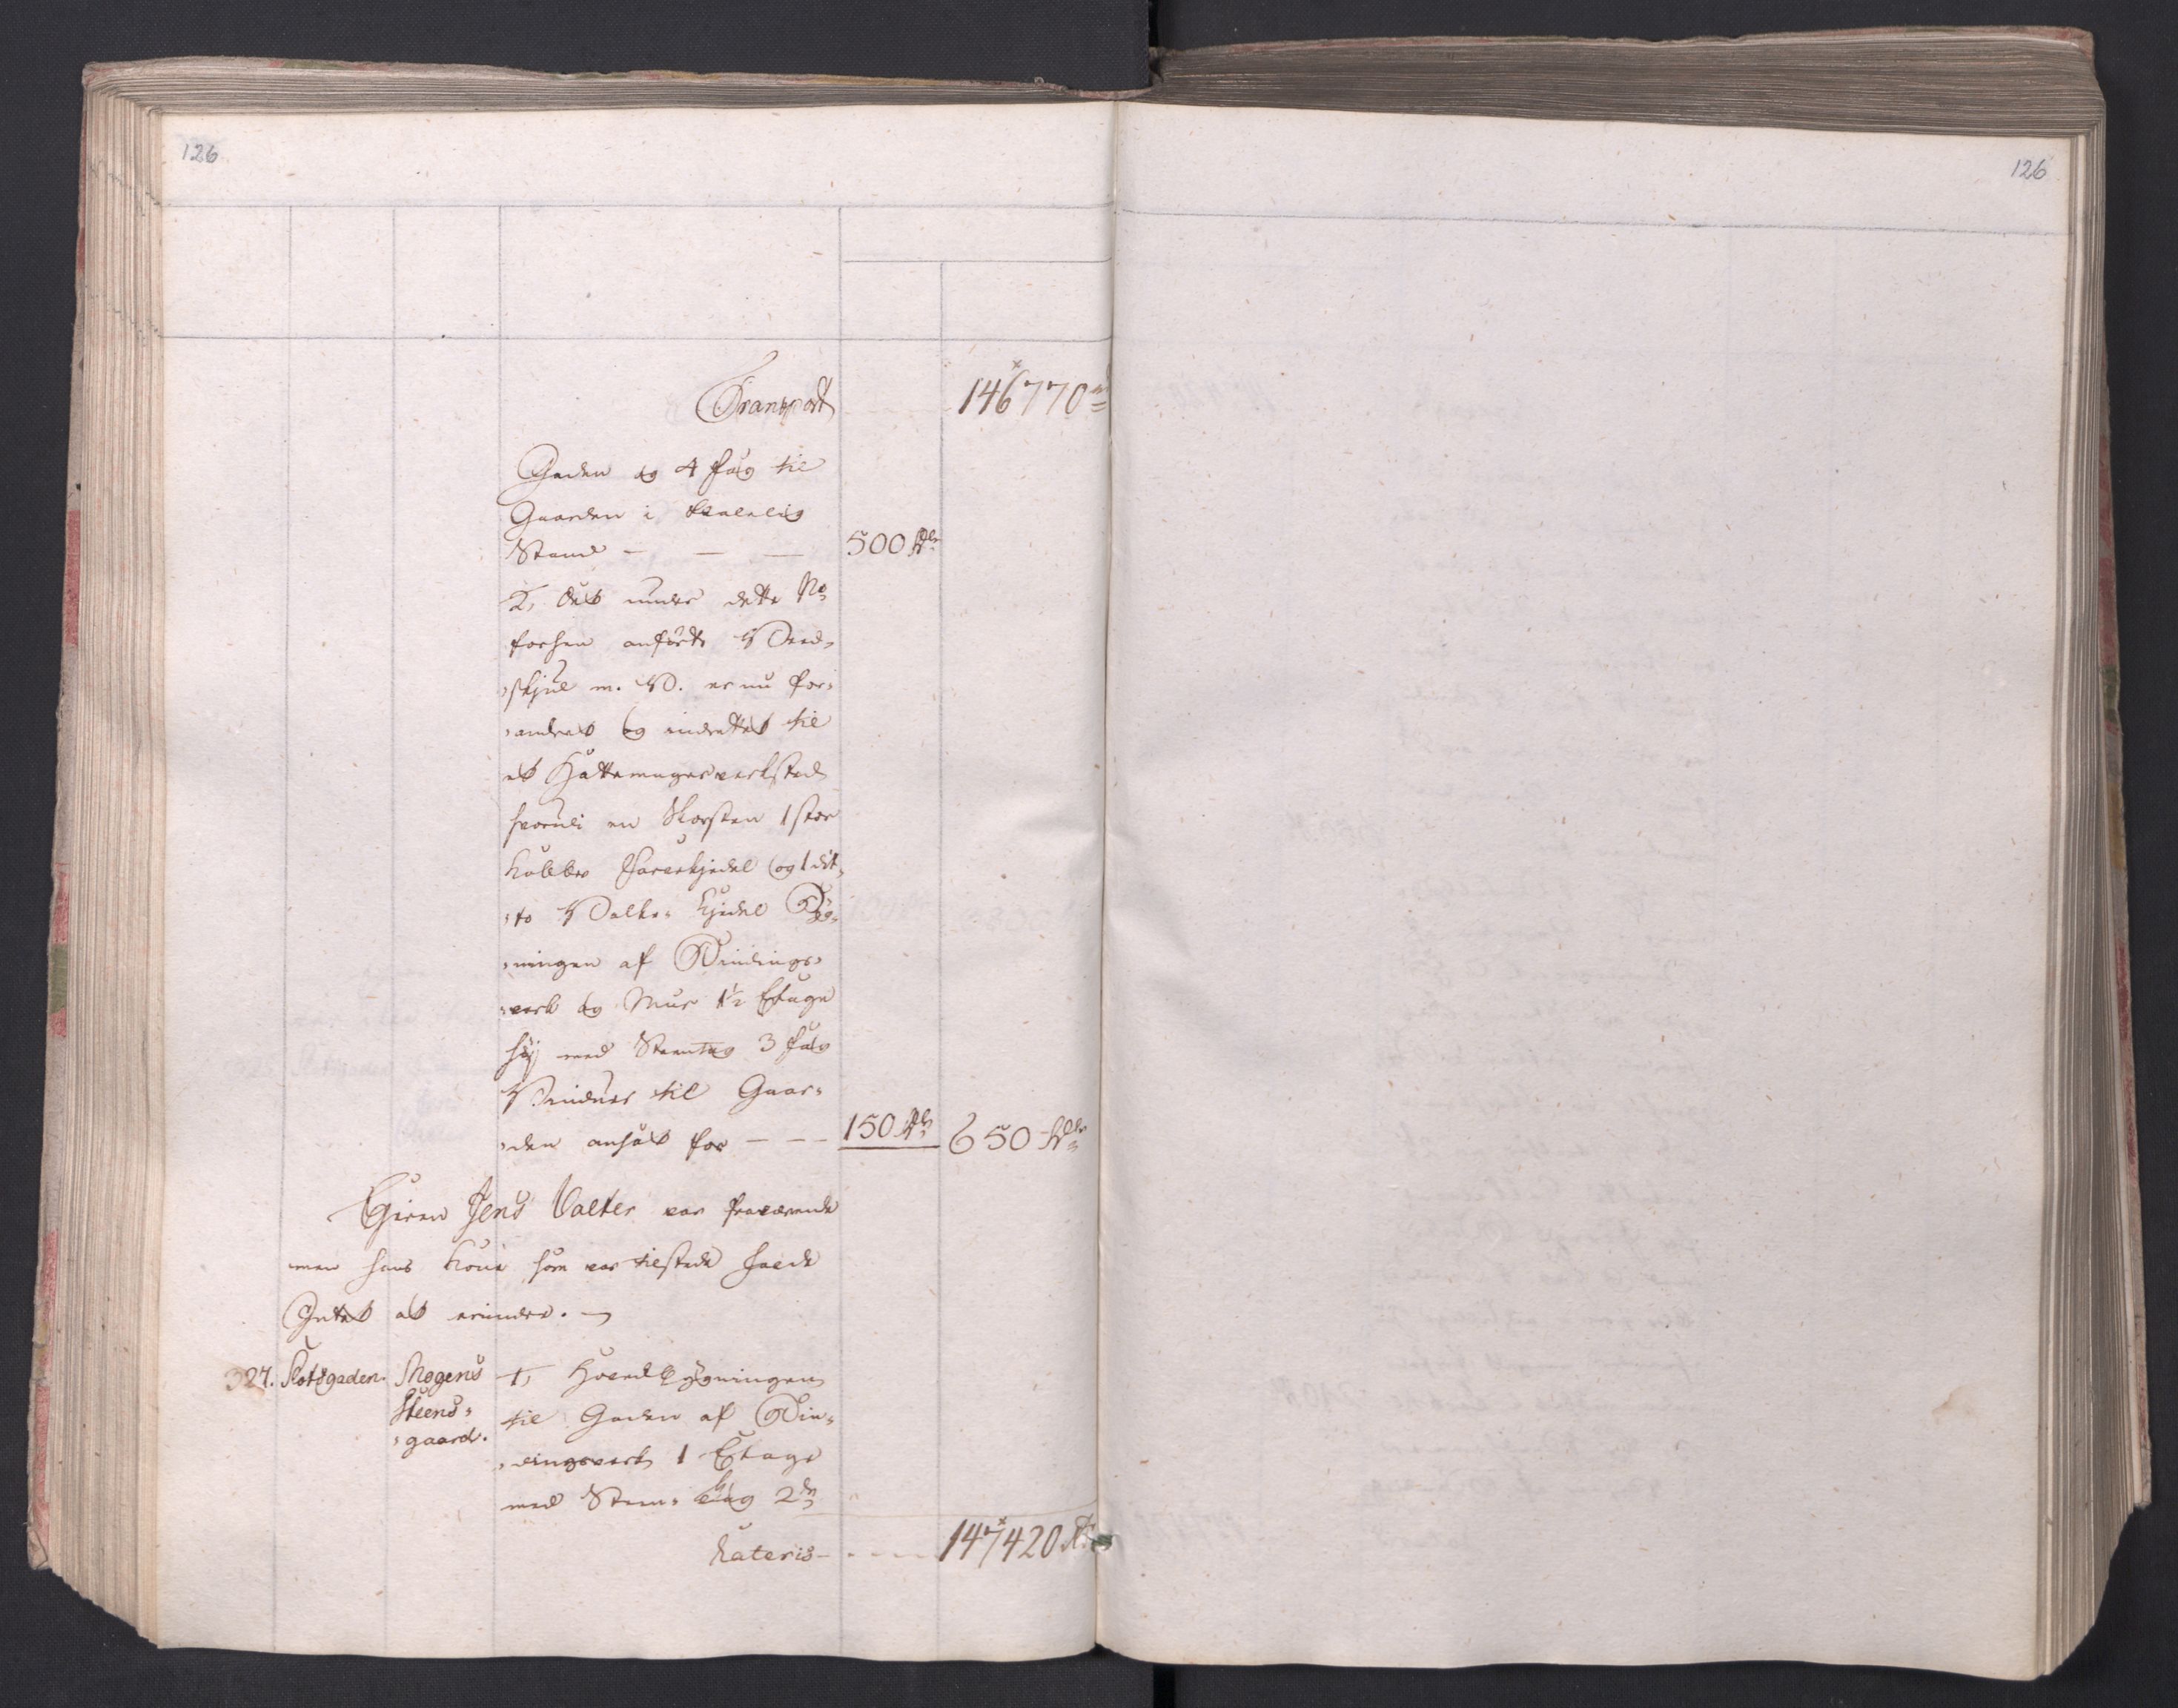 126
126
Transport 146770 rd
Gaden og 4 Fag til
Gaarden i brugelig
Stand — — — 500 Rdlr
2, Det under dette No
forhen anførte Brænd-
-skjul m. V. er nu for-
-andret og indrettet til
et Hattemagerværksted
hvorudi en Skorsten 1 stor
Kobber Farvekjedel og 1 dit-
-to Valke- Kjedel Byg-
-ningen af Bindings-
-verk og Muur 1½ Etage
høj med Steentag 3 Fag
Vinduer til Gaar-
-den ansat for — — 150 Rdlr 650 Rdlr
Eieren Jens Valter var fraværende
men hans Kone som var tilstæde havde
Intet at erindre. —
327. Slotsgaden. Mogens Steens- -gaard. 1, Hovedbygningen
til Gaden af Bin-
-dingsverk 1 Etage
med Steen- tag 2de
Lateris — 147420 Rd